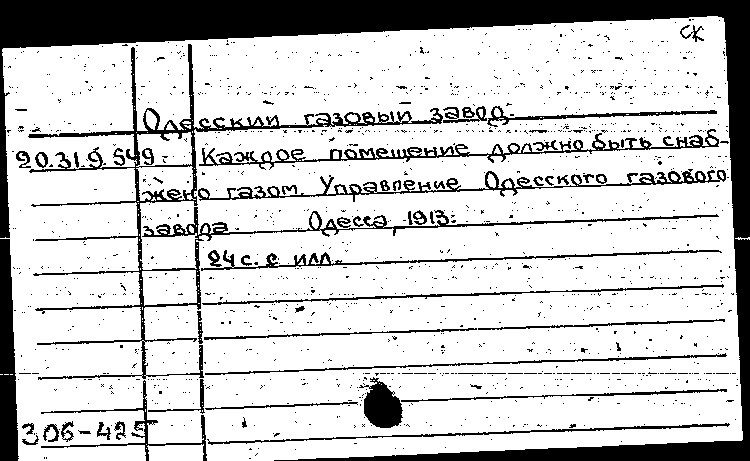 СК
Одесский газовый завод.
20.31.9.549. Каждое помещение должно быть снаб-
жено газом. Управление Одесского газового
завода. Одесса, 1913.
24 с. с илл.
306-425